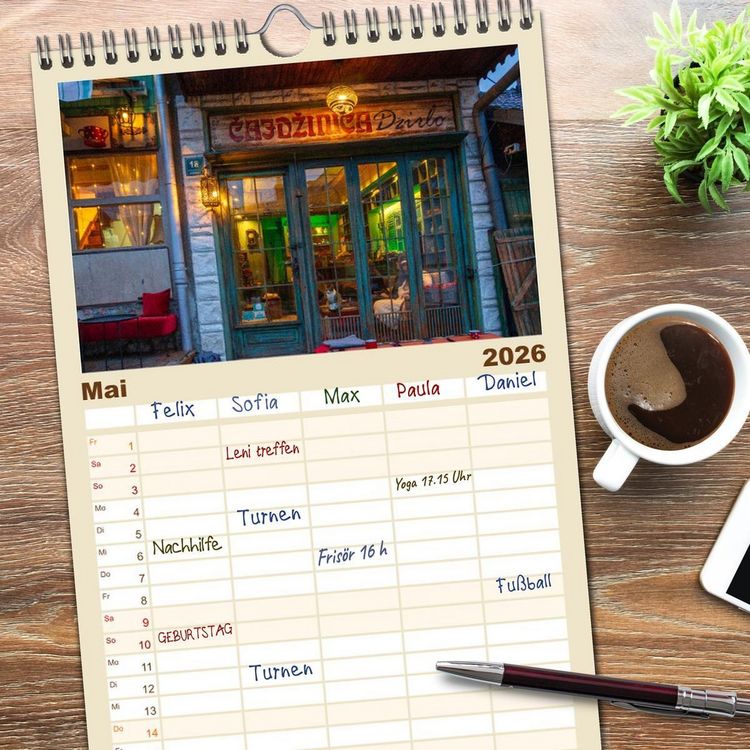 ČAJDŽINICA Džirlo
18
Mai 2026
Felix Sofia Max Paula Daniel
Fr 1
Sa 2 Leni treffen
So 3
Mo 4 Yoga 17.15 Uhr
Di 5 Turnen
Mi 6 Nachhilfe
Do 7 Frisör 16 h
Fr 8
Sa 9 Fußball
So 10 GEBURTSTAG
Mo 11
Di 12 Turnen
Mi 13
Do 14